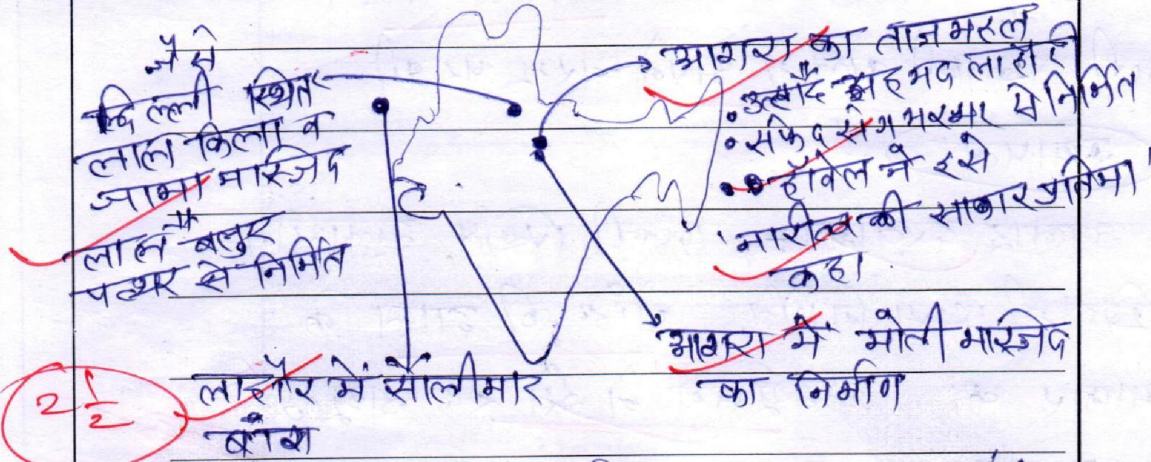 जैसे
दिल्ली स्थित
लाल किला व
जामा मस्जिद
लाल बलुए
पत्थर से निर्मित
आगरा का ताजमहल
• उस्ताद अहमद लाहौरी
• सफेद संगमरमर से निर्मित
• हॉवेल ने इसे
'नारीत्व की साकार प्रतिमा'
कहा
आगरा में मोती मस्जिद
का निर्माण
लाहौर में सालीमार
बाग
2 1/2